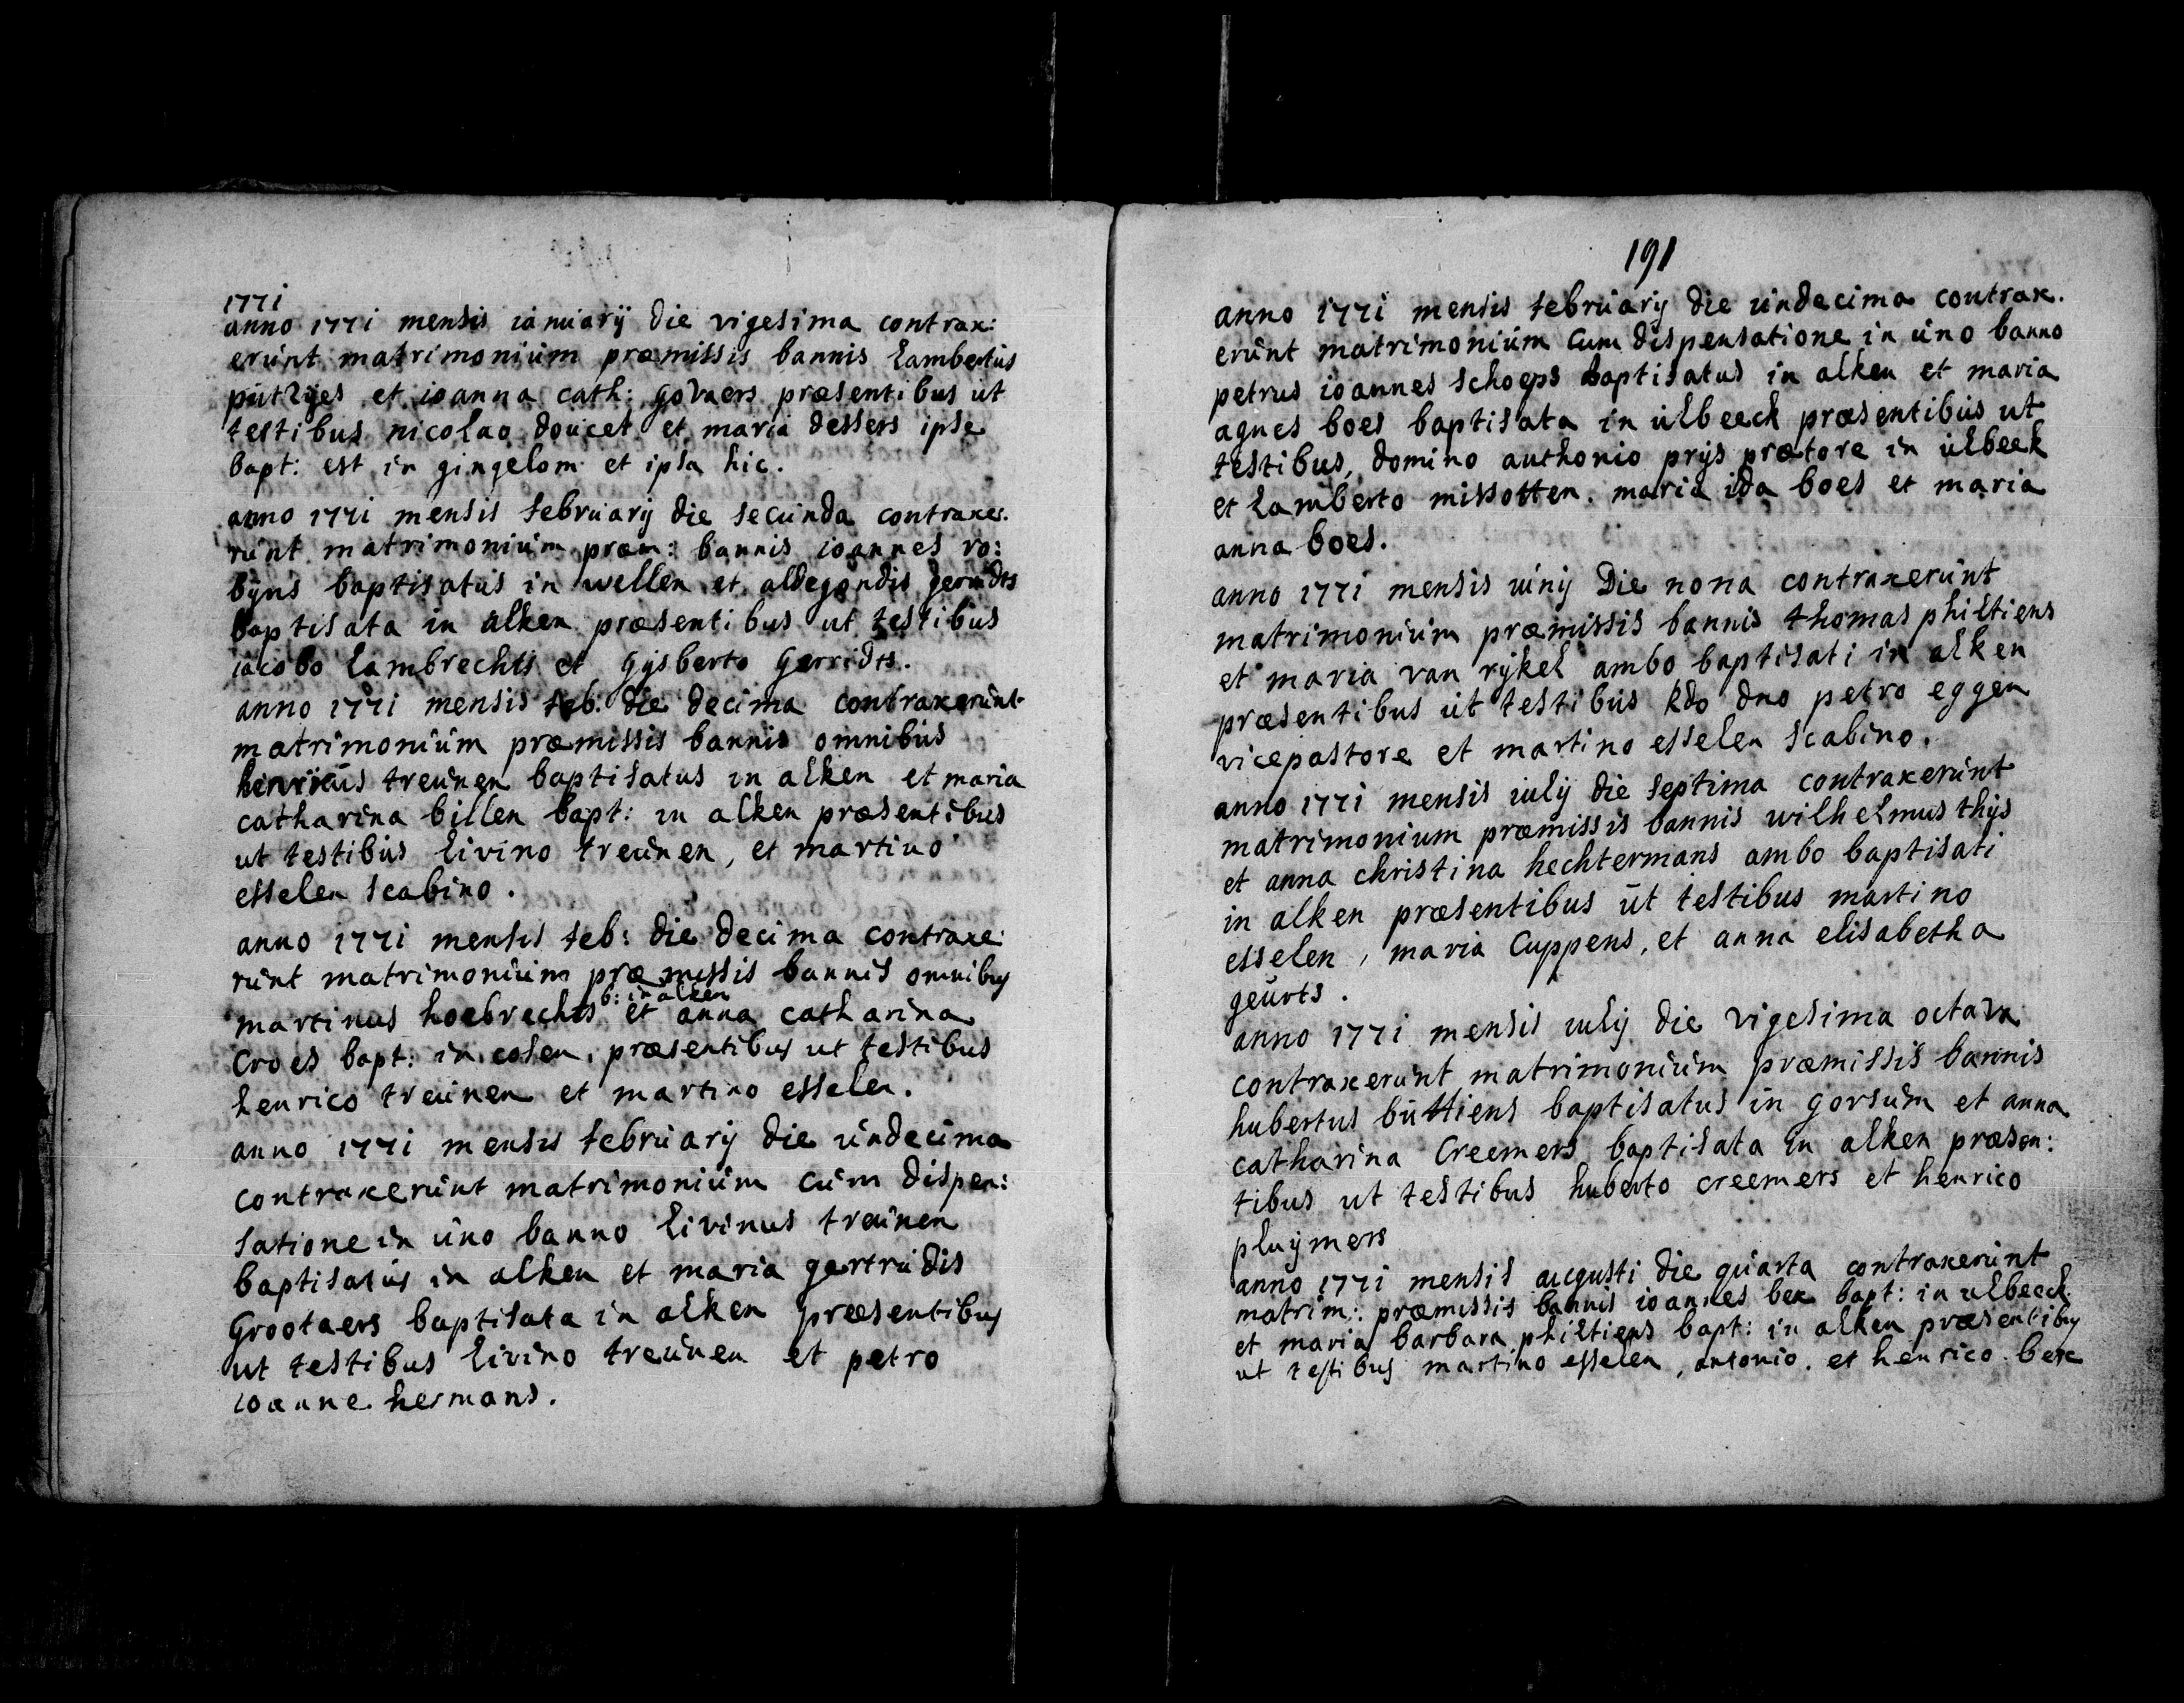 1771
anno 1771 mensis ianuarij die vigesima contrax:
erunt matrimonium præmissis bannis Lambertus
putzijes et ioanna cath: govaers præsentibus ut
testibus nicolao doucet et maria dessers ipse
bapt: est in gingelom et ipsa hic.
anno 1771 mensis februarij die secunda contraxe.
runt matrimonium præm: bannis ioannes ro:
bijns baptisatus in wellen et aldegondis gerridts
baptisata in alken præsentibus ut testibus
iacobo Lambrechts et Gijsberto Gerridts.
anno 1771 mensis feb: die decima contraxerunt
matrimonium præmissis bannis omnibus
henricus treunen baptisatus in alken et maria
catharina billen bapt: in alken præsentibus
ut testibus Livino treunen, et martino
esselen scabino.
anno 1771 mensis feb: die decima contraxe
runt matrimonium præmissis bannis omnibus
b: in alken
martinus hoebrechts et anna catharina
Croes bapt: in cosen, præsentibus ut testibus
henrico treunen et martino esselen.
anno 1771 mensis februarij die undecima
contraxerunt matrimonium cum dispen:
satione in uno banno Livinus treunen
baptisatus in alken et maria gertrudis
Grootaers baptisata in alken præsentibus
ut testibus Livino treunen et petro
ioanne hermans.
191
anno 1771 mensis februarij die undecima contrax.
erunt matrimonium cum dispensatione in uno banno
petrus ioannes schoeps baptisatus in alken et maria
agnes boes baptisata in ulbeeck præsentibus ut
testibus, domino anthonio prijs prætore in ulbeek
et Lamberto missotten. maria ida boes et maria
anna boes.
anno 1771 mensis iunij Die nona contraxerunt
matrimonium præmissis bannis thomas philtiens
et maria van rijkel ambo baptisati in alken
præsentibus ut testibus Rdo dno petro eggen
vicepastore et martino esselen scabino.
anno 1771 mensis iulij die septima contraxerunt
matrimonium præmissis bannis wilhelmus thijs
et anna christina hechtermans ambo baptisati
in alken præsentibus ut testibus martino
esselen, maria Cuppens, et anna elisabetha
geurts.
anno 1771 mensis iulij die vigesima octava
contraxerunt matrimonium præmissis bannis
hubertus buttiens baptisatus in gorsum et anna
catharina Creemers baptisata in alken præsen:
tibus ut testibus huberto creemers et henrico
pluijmers
anno 1771 mensis augusti die quarta contraxerunt
matrim: præmissis bannis ioannes bex bapt: in ulbeeck
et maria barbara philtiens bapt: in alken præsentibus
ut testibus martino esselen, antonio. et henrico bex